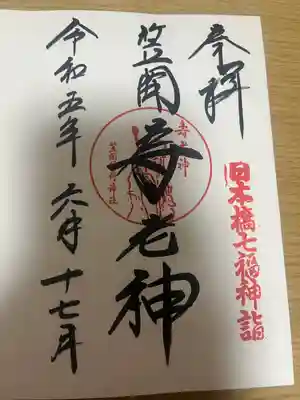 奉拝
日本橋七福神詣
笠間寿老神
寿老神
笠間稲荷神社
令和五年六月十七日